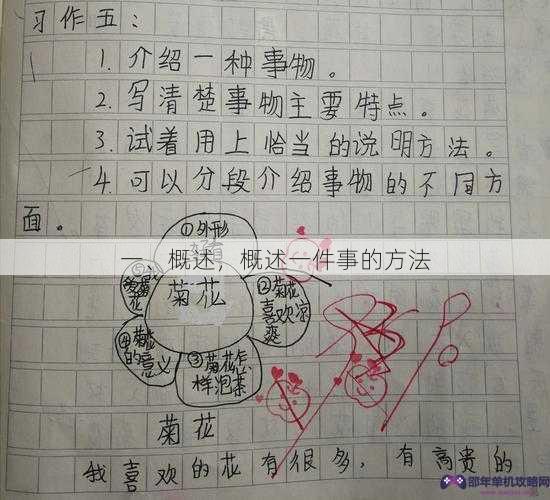 习作五：
1. 介绍一种事物。
2. 写清楚事物主要特点。
3. 试着用上恰当的说明方法。
4. 可以分段介绍事物的不同方
面。
①外形
一、概述，概述一件事的方法
菊花
②菊花
喜欢凉
爽
④菊花
的意义
③菊花怎
样泡茶
菊花
我喜欢的花有很多，有高贵的
部年单机攻略网